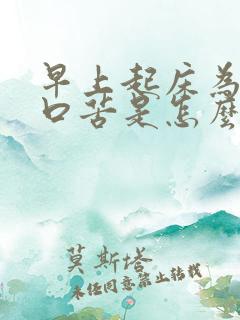 早上起床為
口苦是怎麼
莫斯塔
未经同意禁止转载